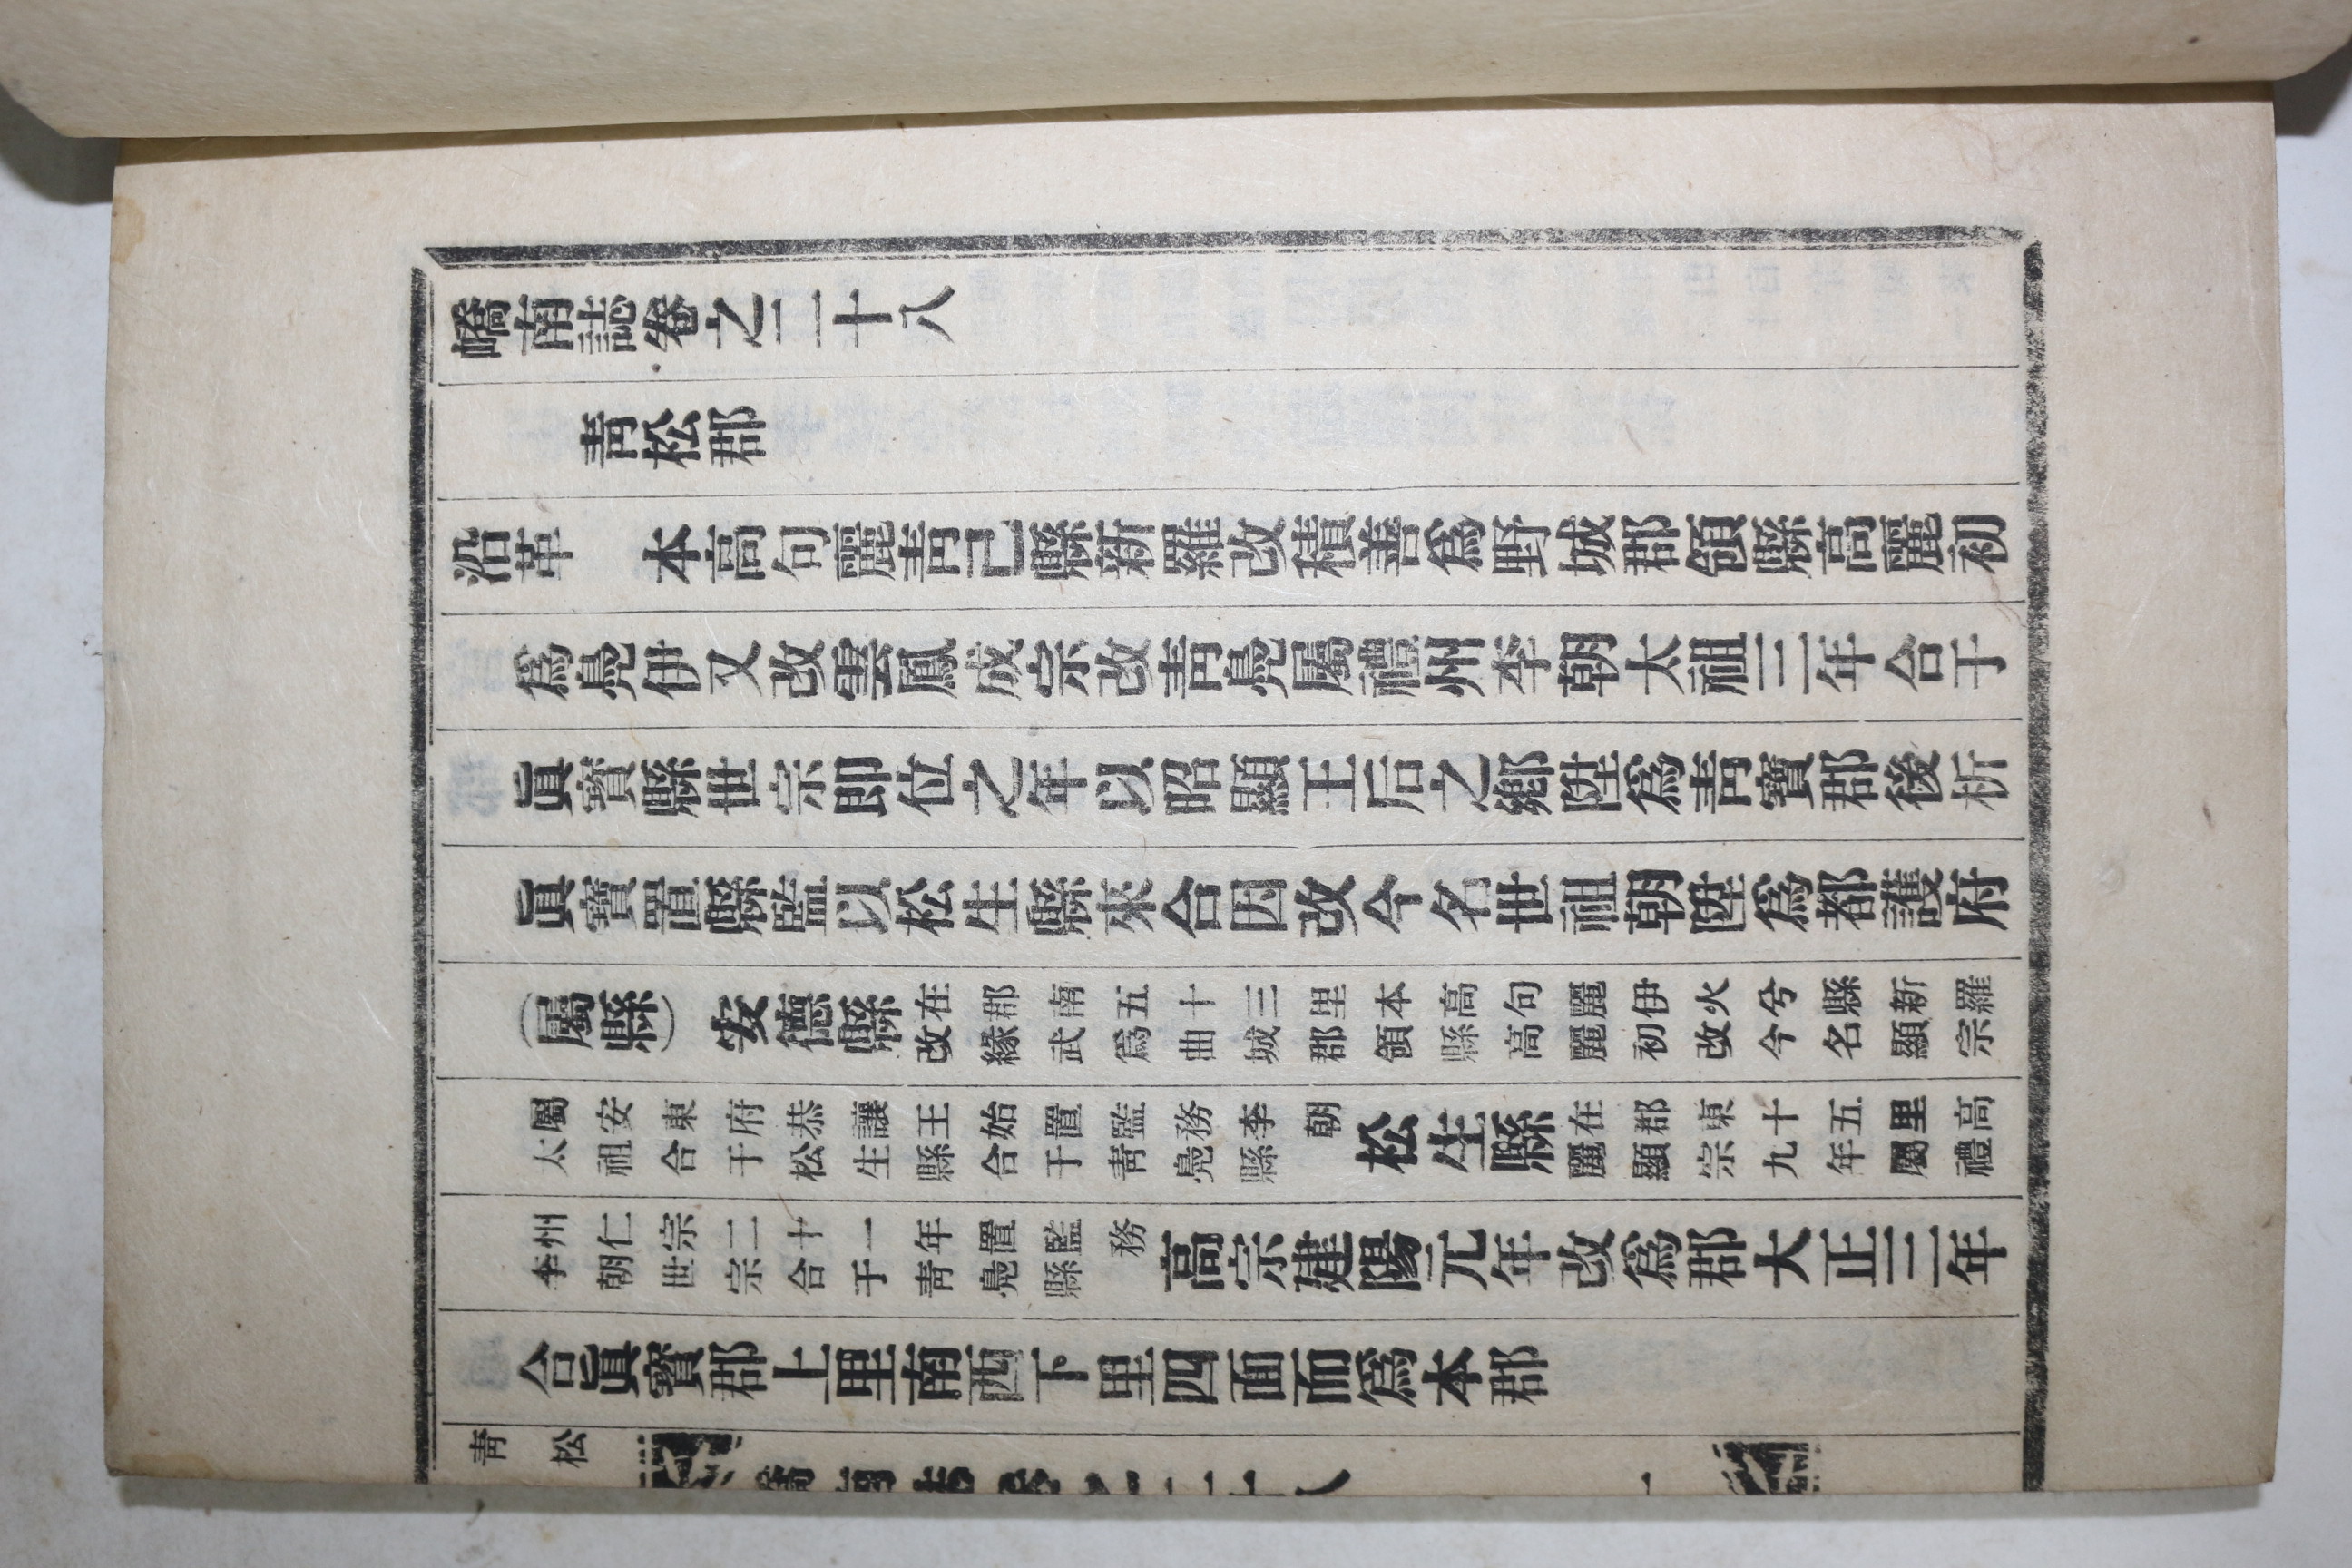 嶠南誌卷之二十八
靑松郡
沿革　本高句麗靑己縣新羅改積善爲野城郡領縣高麗初
爲鳧伊又改雲鳳成宗改靑鳧屬禮州李朝太祖三年合于
眞寶縣世宗卽位之年以昭顯王后之鄕陞爲靑寶郡後析
眞寶置縣監以松生縣來合因改今名世祖朝陞爲都護府
（屬縣）安德縣
在郡南五十三里本高句麗伊火兮縣新羅
改緣武爲曲城郡領縣高麗初改今名顯宗
屬安東府恭讓王始置監務李朝
太祖合于松生縣合于靑鳧縣
松生縣
在郡東十五里高
麗顯宗九年屬禮
州仁宗二十一年置監務
李朝世宗合于靑鳧縣
高宗建陽元年改爲郡大正三年
合眞寶郡上里南西下里四面而爲本郡
靑松
嶠南誌卷之二十八
一